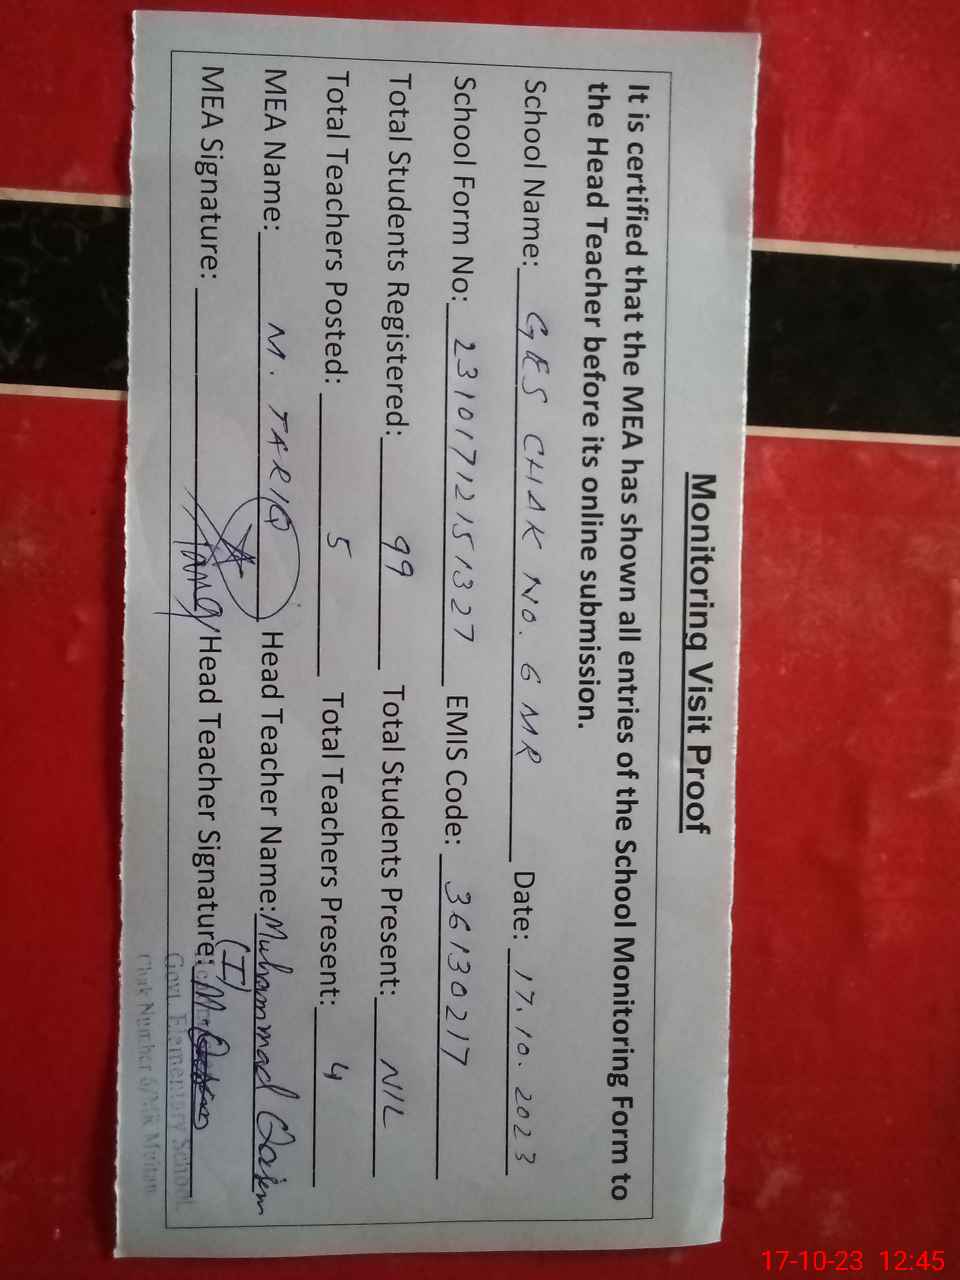 Monitoring Visit Proof
It is certified that the MEA has shown all entries of the School Monitoring Form to
the Head Teacher before its online submission.
School Name: GES CHAK NO. 6 MR Date: 17.10.2023
School Form No: 23101712151327 EMIS Code: 36130217
Total Students Registered: 99 Total Students Present: NIL
Total Teachers Posted: 5 Total Teachers Present: 4
MEA Name: M. TARIQ Head Teacher Name: Muhammad Qasim
(I)
MEA Signature: Tariq Head Teacher Signature: M. Qasim
Govt. Elementary School
Chak Number 6/MR Multan
17-10-23 12:45